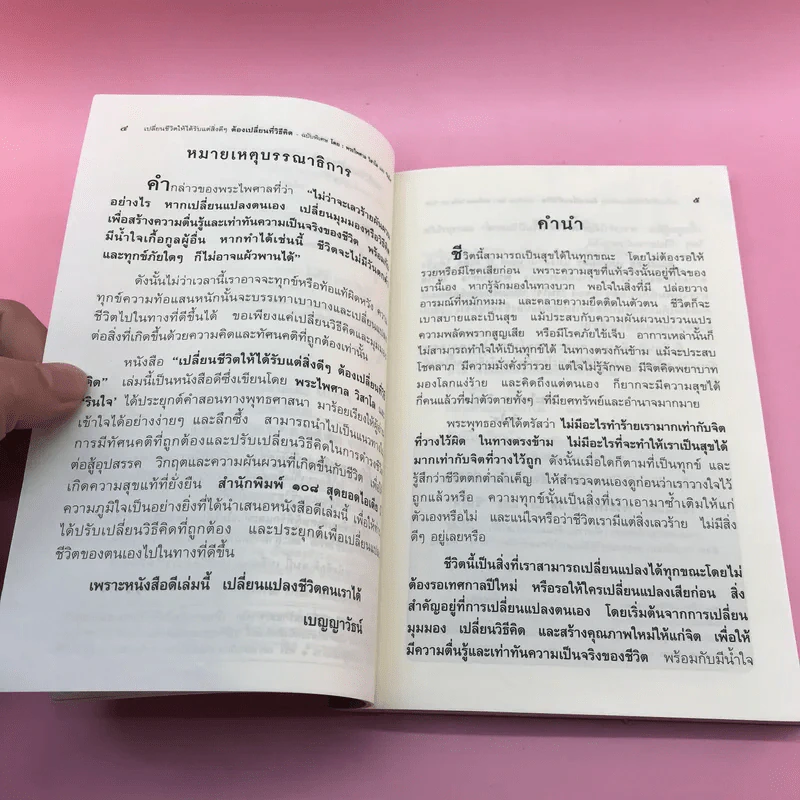 ๔ เปลี่ยนชีวิตให้ได้รับแต่สิ่งดีๆ ต้องเปลี่ยนที่วิธีคิด - ฉบับพิเศษ โดย : พระไพศาล วิสาโล
หมายเหตุบรรณาธิการ
คำกล่าวของพระไพศาลที่ว่า “ไม่ว่าจะเลวร้าย
อย่างไร หากเปลี่ยนแปลงตนเอง เปลี่ยนมุมมองหรือวิธี
เพื่อสร้างความตื่นรู้และเท่าทันความเป็นจริงของชีวิต
มีน้ำใจเกื้อกูลผู้อื่น หากทำได้เช่นนี้ ชีวิตจะไม่มีวัน
และทุกข์ภัยใดๆ ก็ไม่อาจแผ้วพานได้”
ดังนั้นไม่ว่าเวลานี้เราอาจจะทุกข์หรือท้อแท้ผิดหวัง
ทุกข์ความท้อแสนหนักนั้นจะบรรเทาเบาบางและเปลี่ยน
ชีวิตไปในทางที่ดีขึ้นได้ ขอเพียงแค่เปลี่ยนวิธีคิดและมุมมอง
ต่อสิ่งที่เกิดขึ้นด้วยความคิดและทัศนคติที่ถูกต้องเท่านั้น
หนังสือ “เปลี่ยนชีวิตให้ได้รับแต่สิ่งดีๆ ต้องเปลี่ยนที่วิธี
คิด” เล่มนี้เป็นหนังสือดีซึ่งเขียนโดย พระไพศาล วิสาโล
‘รินใจ’ ได้ประยุกต์คำสอนทางพุทธศาสนา มาร้อยเรียงให้ผู้
เข้าใจได้อย่างง่ายๆ และลึกซึ้ง สามารถนำไปเป็นแนวทาง
การมีทัศนคติที่ถูกต้องและปรับเปลี่ยนวิธีคิดในการดำรงชีวิต
ต่อสู้อุปสรรค วิกฤตและความผันผวนที่เกิดขึ้นกับชีวิต เพื่อ
เกิดความสุขแท้ที่ยั่งยืน สำนักพิมพ์ ๑๐๘ สุดยอดไอเดีย
ความภูมิใจเป็นอย่างยิ่งที่ได้นำเสนอหนังสือดีเล่มนี้ เพื่อให้
ได้ปรับเปลี่ยนวิธีคิดที่ถูกต้อง และประยุกต์เพื่อเปลี่ยนแปลง
ชีวิตของตนเองไปในทางที่ดีขึ้น
เพราะหนังสือดีเล่มนี้ เปลี่ยนแปลงชีวิตคนเราได้
เบญญาวัธน์
๕
คำนำ
ชีวิตนี้สามารถเป็นสุขได้ในทุกขณะ โดยไม่ต้องรอให้
รวยหรือมีโชคเสียก่อน เพราะความสุขที่แท้จริงนั้นอยู่ที่ใจของ
เรานี้เอง หากรู้จักมองในทางบวก พอใจในสิ่งที่มี ปล่อยวาง
อารมณ์ที่หมักหมม และคลายความยึดติดในตัวตน ชีวิตก็จะ
เบาสบายและเป็นสุข แม้ประสบกับความผันผวนปรวนแปร
ความพลัดพรากสูญเสีย หรือมีโรคภัยไข้เจ็บ อาการเหล่านั้นก็
ไม่สามารถทำใจให้เป็นทุกข์ได้ ในทางตรงกันข้าม แม้จะประสบ
โชคลาภ มีความมั่งคั่งร่ำรวย แต่ไม่รู้จักพอ มีจิตคิดพยาบาท
มองโลกแง่ร้าย และคิดถึงแต่ตนเอง ก็ยากจะมีความสุขได้
กี่คนแล้วที่ฆ่าตัวตายทั้งๆ ที่มียศทรัพย์และอำนาจมากมาย
พระพุทธองค์ได้ตรัสว่า ไม่มีอะไรทำร้ายเรามากเท่ากับจิต
ที่วางไว้ผิด ในทางตรงข้าม ไม่มีอะไรที่จะทำให้เราเป็นสุขได้
มากเท่ากับจิตที่วางไว้ถูก ดังนั้นเมื่อใดก็ตามที่เป็นทุกข์ และ
รู้สึกว่าชีวิตตกต่ำลำเค็ญ ให้สำรวจตนเองดูก่อนว่าเราวางใจไว้
ถูกแล้วหรือ ความทุกข์นั้นเป็นสิ่งที่เราเอามาซ้ำเติมให้แก่
ตัวเองหรือไม่ และแน่ใจหรือว่าชีวิตเรามีแต่สิ่งเลวร้าย ไม่มีสิ่ง
ดีๆ อยู่เลยหรือ
ชีวิตนี้เป็นสิ่งที่เราสามารถเปลี่ยนแปลงได้ทุกขณะโดยไม่
ต้องรอเทศกาลปีใหม่ หรือรอให้ใครเปลี่ยนแปลงเสียก่อน สิ่ง
สำคัญอยู่ที่การเปลี่ยนแปลงตนเอง โดยเริ่มต้นจากการเปลี่ยน
มุมมอง เปลี่ยนวิธีคิด และสร้างคุณภาพใหม่ให้แก่จิต เพื่อให้
มีความตื่นรู้และเท่าทันความเป็นจริงของชีวิต พร้อมกับมีน้ำใจ